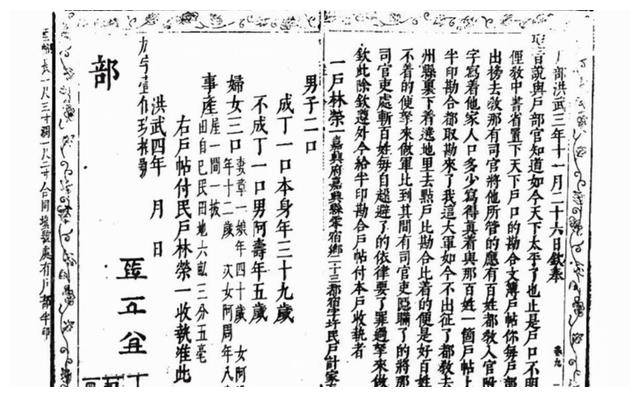 户部洪武三年十一月二十六日欽奉
聖旨說與戶部官知道如今天下太平了也止是戶口不明
俚敎中書省置下天下戶口的勘合文簿戶帖你每戶部
出榜去敎那有司官將他所管的應有百姓都敎入官附
字寫着他家人口多少寫得真着與那百姓一箇戶帖上
半印勘合都取勘來了我這大軍如今不出征了都敎去
州縣裏下着遶地里去點戶比勘合比着的便是好百姓
不着的便拏來做軍比到其間有司官吏隱瞞了的將那
司官吏處斬百姓每自趓避了的依律要了罪過拏來做
欽此除欽遵外今給半印勘合戶帖付本戶收執者
一戶林榮一嘉興府嘉興縣零宿鄉二十三都宿字圩民戶計家
男子二口
成丁一口本身年三十九歲
不成丁一口男阿壽年五歲
婦女三口妻章一娘年四十歲 女阿
年十二歲 次女阿周年八
事產屋一間一披
田自己民田地六畝三分五毫
右戶帖付民戶林榮一收執准此
洪武四年 月 日
部